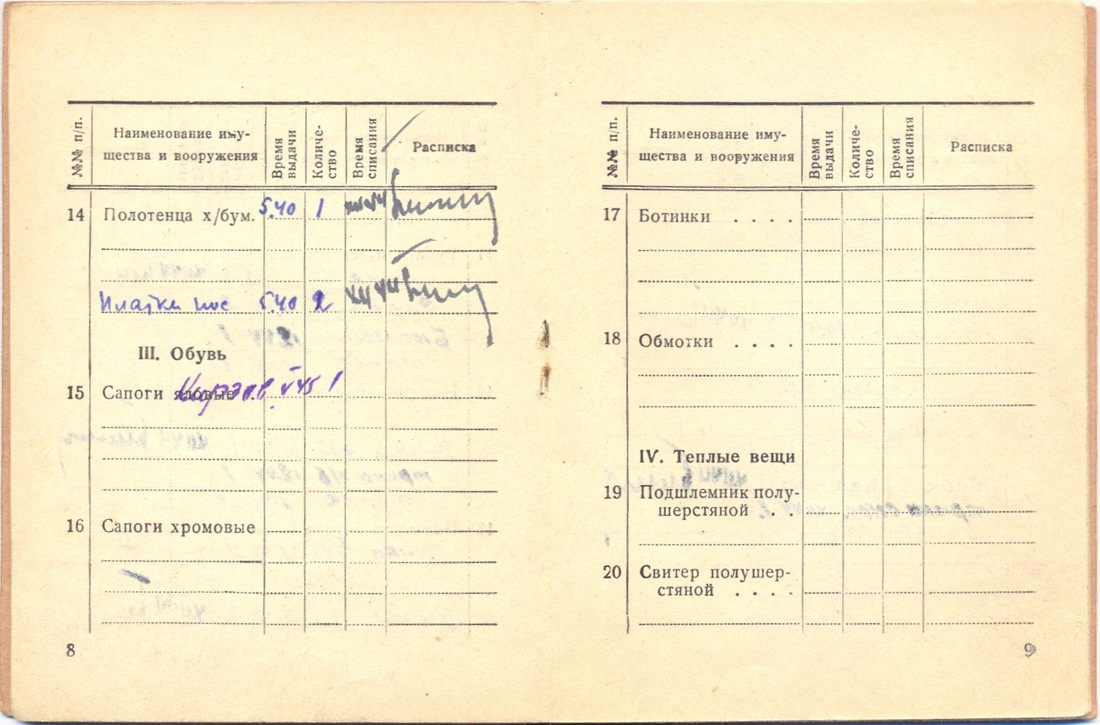 №№ п/п.
Наименование иму-
щества и вооружения
Время
выдачи
Количе-
ство
Время
списания
Расписка
14 Полотенца х/бум. 5.40 1
Платки нос 5.40 2
III. Обувь
15 Сапоги яловые . V 45 1
16 Сапоги хромовые
8
№№ п/п.
Наименование иму-
щества и вооружения
Время
выдачи
Количе-
ство
Время
списания
Расписка
17 Ботинки . . . .
18 Обмотки . . . .
IV. Теплые вещи
19 Подшлемник полу-
шерстяной . .
20 Свитер полушер-
стяной . . . .
9